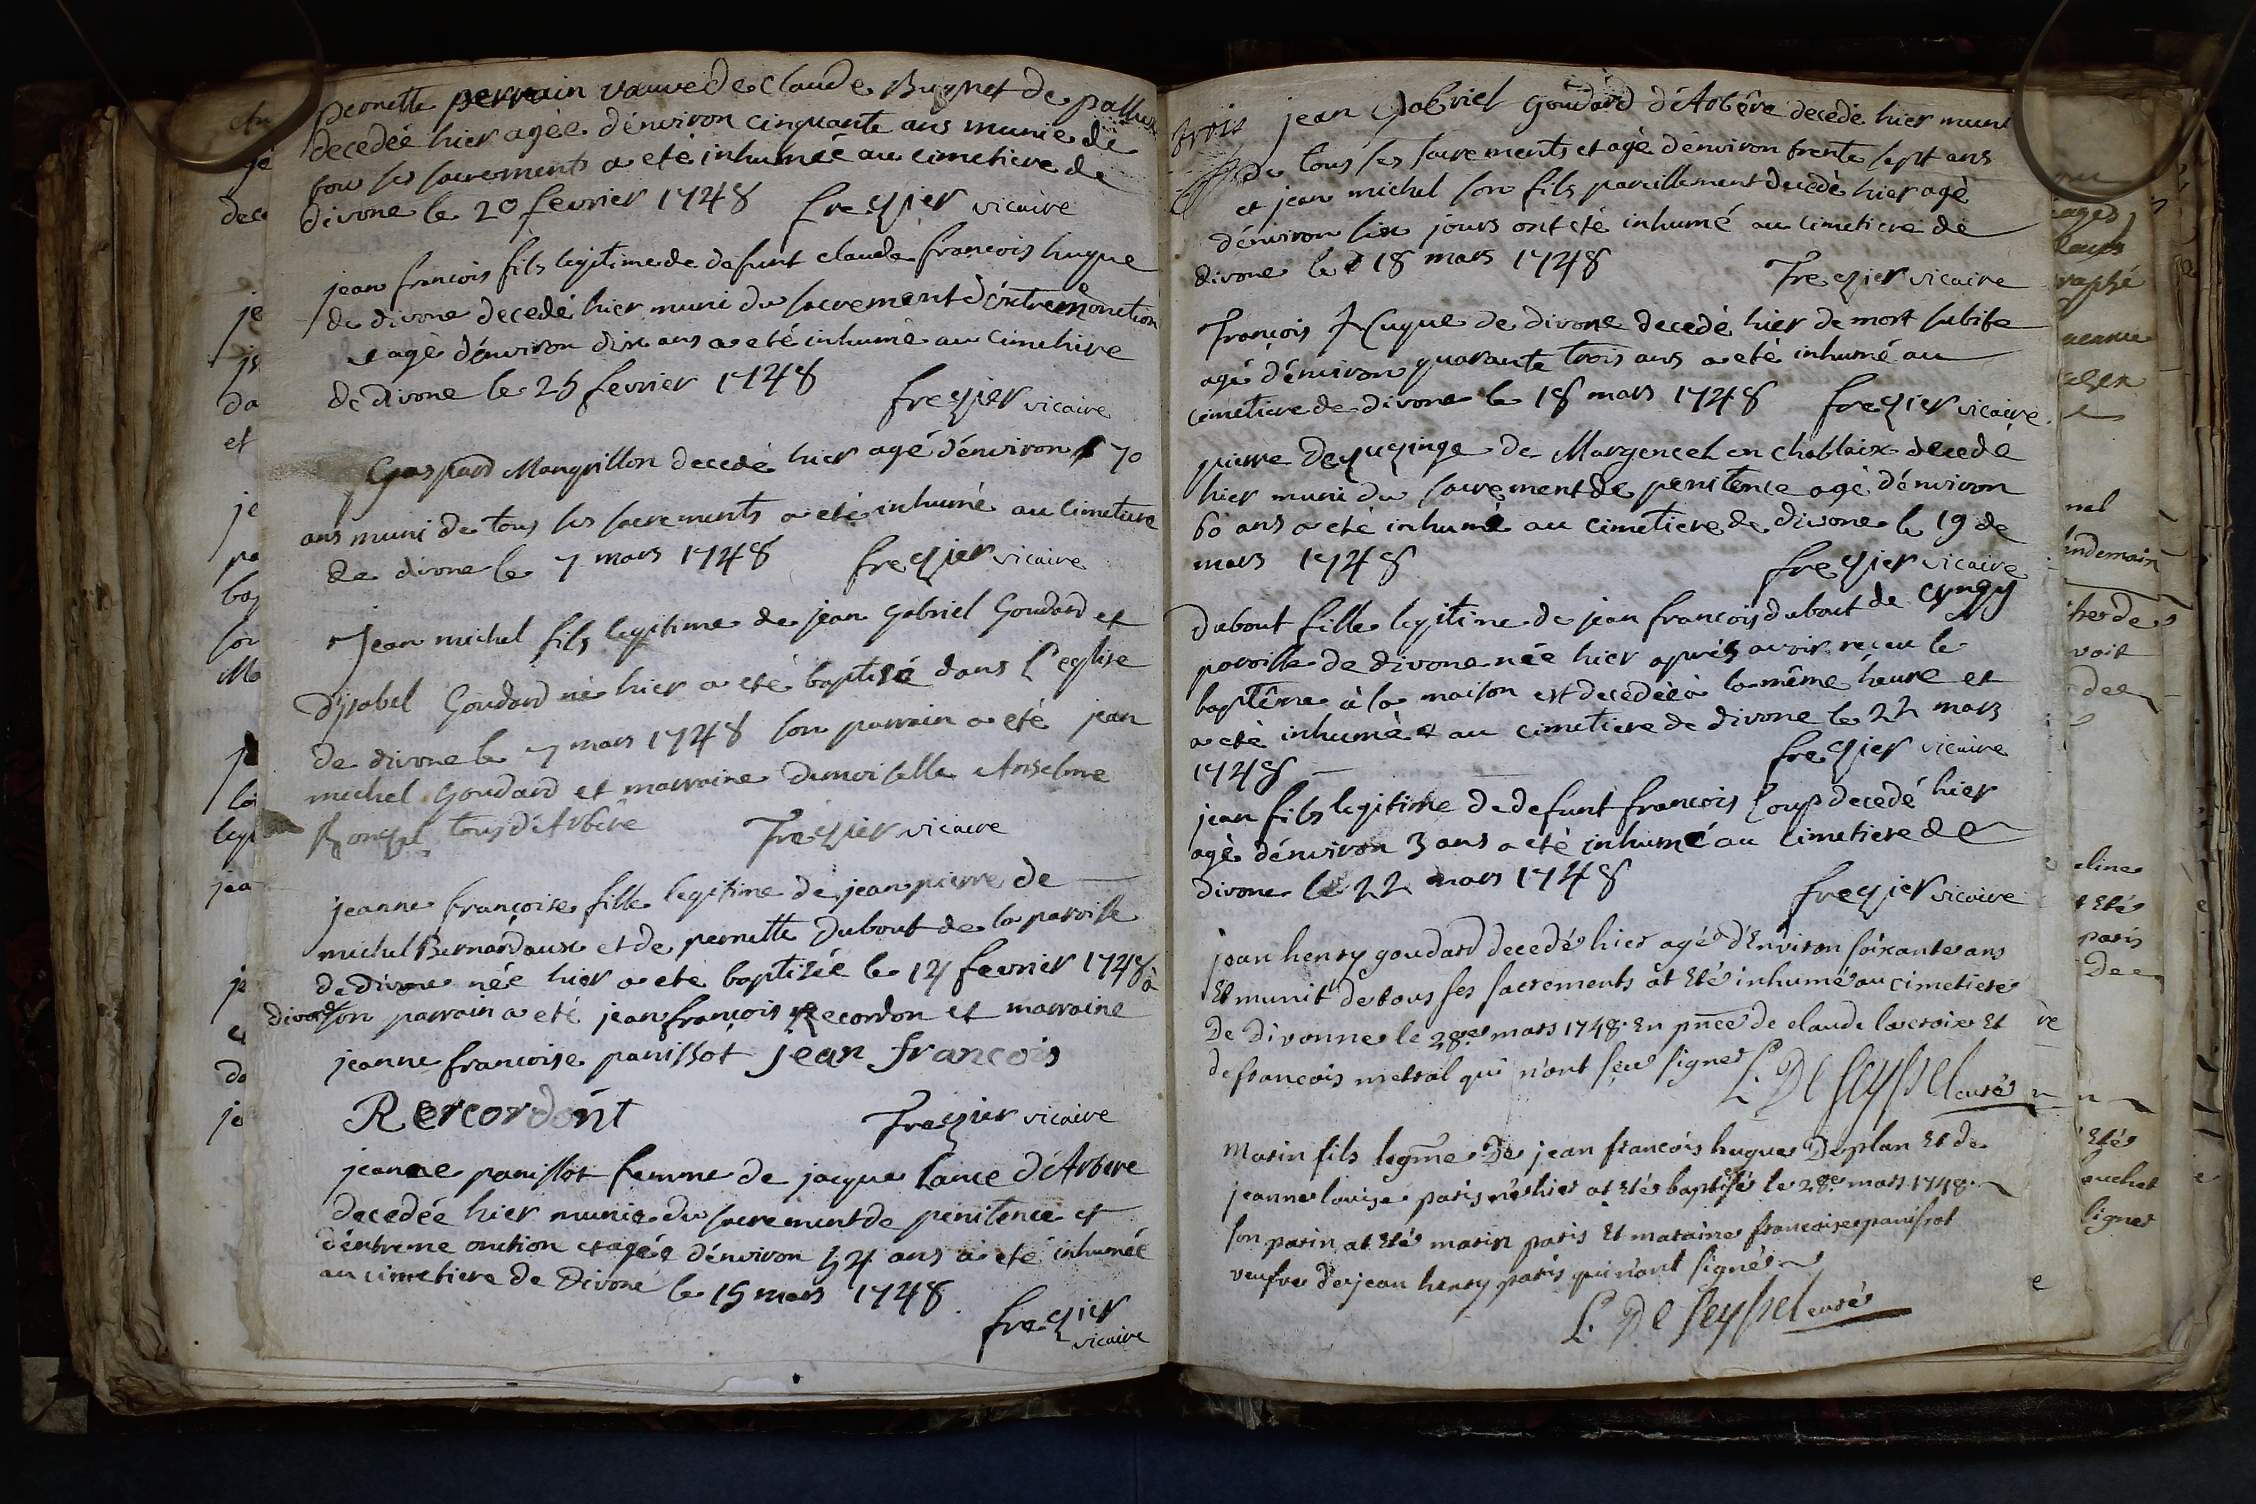 pernette perrain veuve de Claude Bugnet de
decedée hier agée d'environ cinquante ans munie de
tous ses sacrements a eté inhumée au cimetiere de
divone le 20 fevrier 1748 frezier vicaire
jean françois fils legitime de defunt claude françois hugue
de divone decedé hier muni du sacrement d'extremonction
et agé d'environ dix ans a eté inhumé au cimetiere
de divone le 25 fevrier 1748 frezier vicaire
Gaspard Mangrillon decedé hier agé d'environ 70
ans muni de tous ses sacrements a eté inhumé au cimetiere
de divone le 7 mars 1748 frezier vicaire
Jean michel fils legitime de jean Gabriel Goudard et
d'jsabel Goudard né hier a eté baptisé dans l'eglise
de divone le 7 mars 1748 son parrain a eté jean
michel Goudard et marraine demoiselle Anselme
tous d'Arbere Frezier vicaire
jeanne françoise fille legitime de jean pierre de
michel Bernardaux et de pernette Dubout de la paroisse
de divone née hier a eté baptisée le 12 fevrier 1748 à
divone son parrain a eté jean françois Recordon et marraine
jeanne francoise panissot jean francois
Rercordont Frezier vicaire
jeanne panissot femme de jacque lance d'Arbere
decedée hier munie du sacrement de penitence et
d'extreme onction et agée d'environ 54 ans a eté inhumée
au cimetiere de Divone le 15 mars 1748
frezier
vicaire
trois jean Gabriel Goudard d'Arbere decedé hier muni
de tous ses sacrements et agé d'environ trente sept ans
et jean michel son fils pareillement decedé hier agé
d'environ six jours ont eté inhumé au cimetiere de
divone le 18 mars 1748 Frezier vicaire
François Hugue de divone decedé hier de mort subite
agé d'environ quarante trois ans a eté inhumé au
cimetiere de divone le 18 mars 1748 frezier vicaire
pierre Dequzinge de Margencel en Chablaix decedé
hier muni du sacrement de penitence agé d'environ
60 ans a eté inhumé au cimetiere de divone le 19 de
mars 1748 frezier vicaire
dubout fille legitime de jean françois dubout de
paroisse de divone née hier aprés avoir reçeu le
baptême à la maison est decedée à la même heure et
a eté inhumée au cimetiere de divone le 22 mars
1748 frezier vicaire
jean fils legitime de defunt françois Loup decedé hier
agé d'environ 3 ans a eté inhumé au cimetiere de
divone le 22 mars 1748 frezier vicaire
jean henry goudard decedé hier agé d'Environ soixante ans
Et munit de tous ses sacrements at Eté inhumé au cimetiere
De Divonne le 28e mars 1748 En pnce de claude lacroix Et
de francois metral qui n'ont sçeu signer L. De Seyssel curé
Marin fils legme De jean francois hugue Deplan Et de
jeanne louise paris né hier at Eté baptisé le 28e mars 1748
son parin at Eté marin paris Et maraine francoise panissot
veufve de jean henry paris qui n'ont signé
L. De Seyssel curé